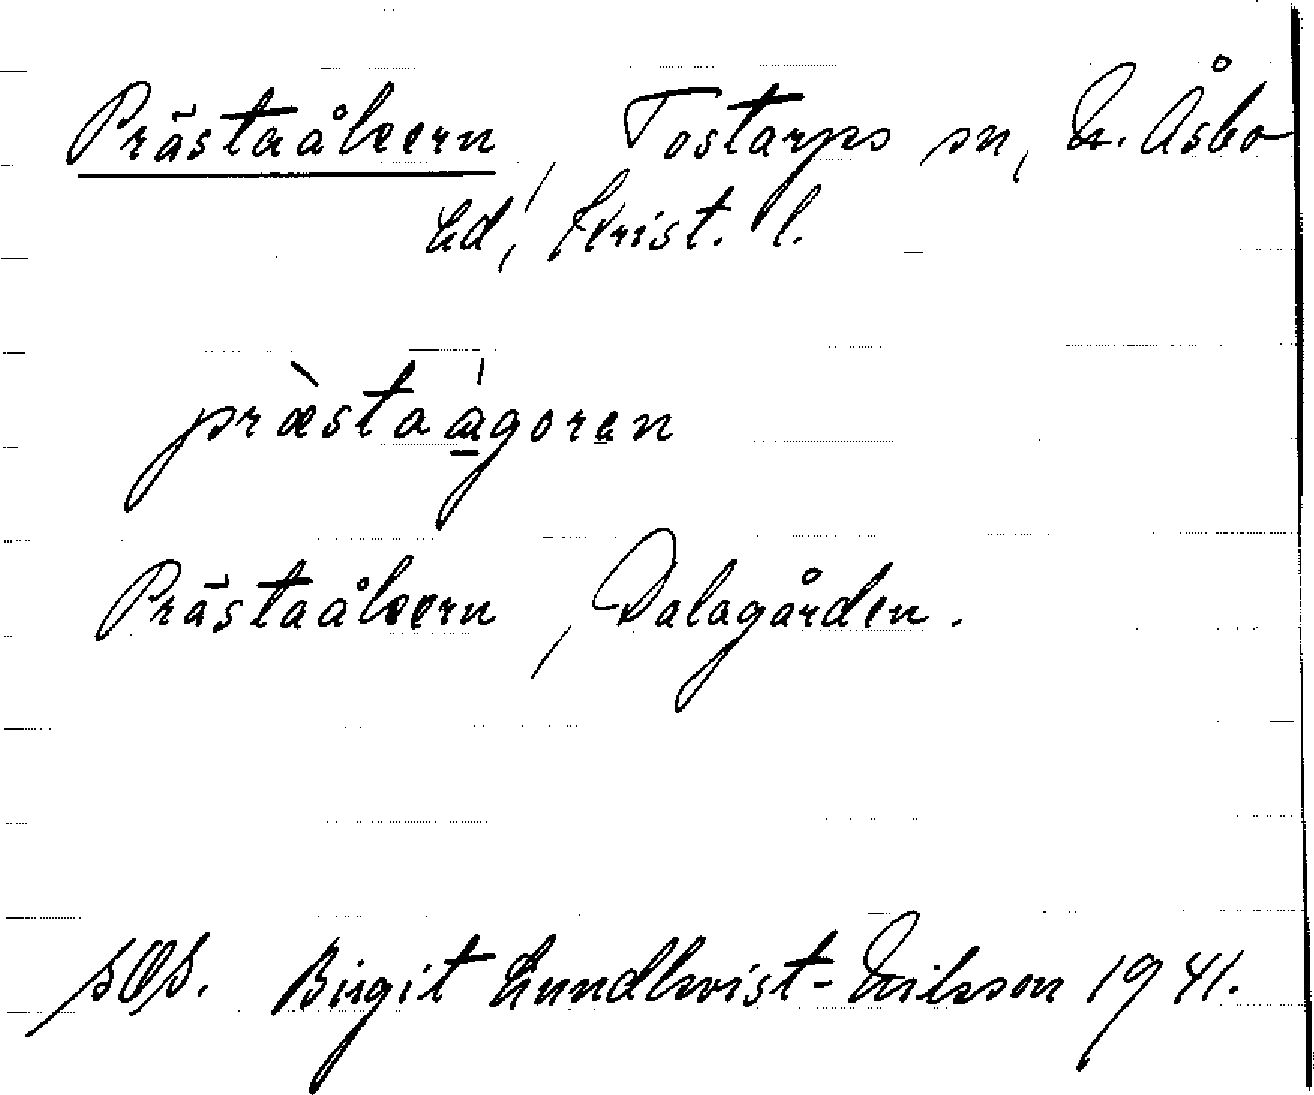 Prästaåkern, Tostarps sn, N. Åsbo
hd, Krist. l.
præ̀staágoren
Prästaåkern, Dalagården.
Birgit Lundkvist-Nilsson 1941.